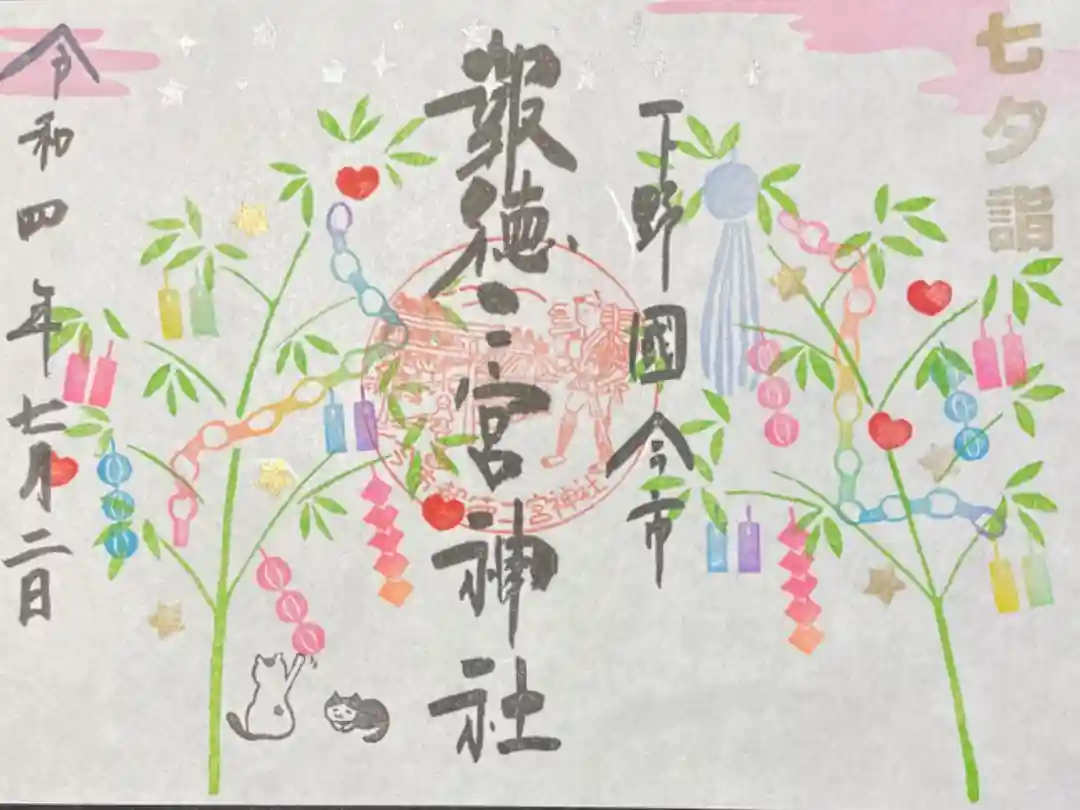 七夕詣
下野國今市
報徳二宮神社
宮神社
令和四年七月二日